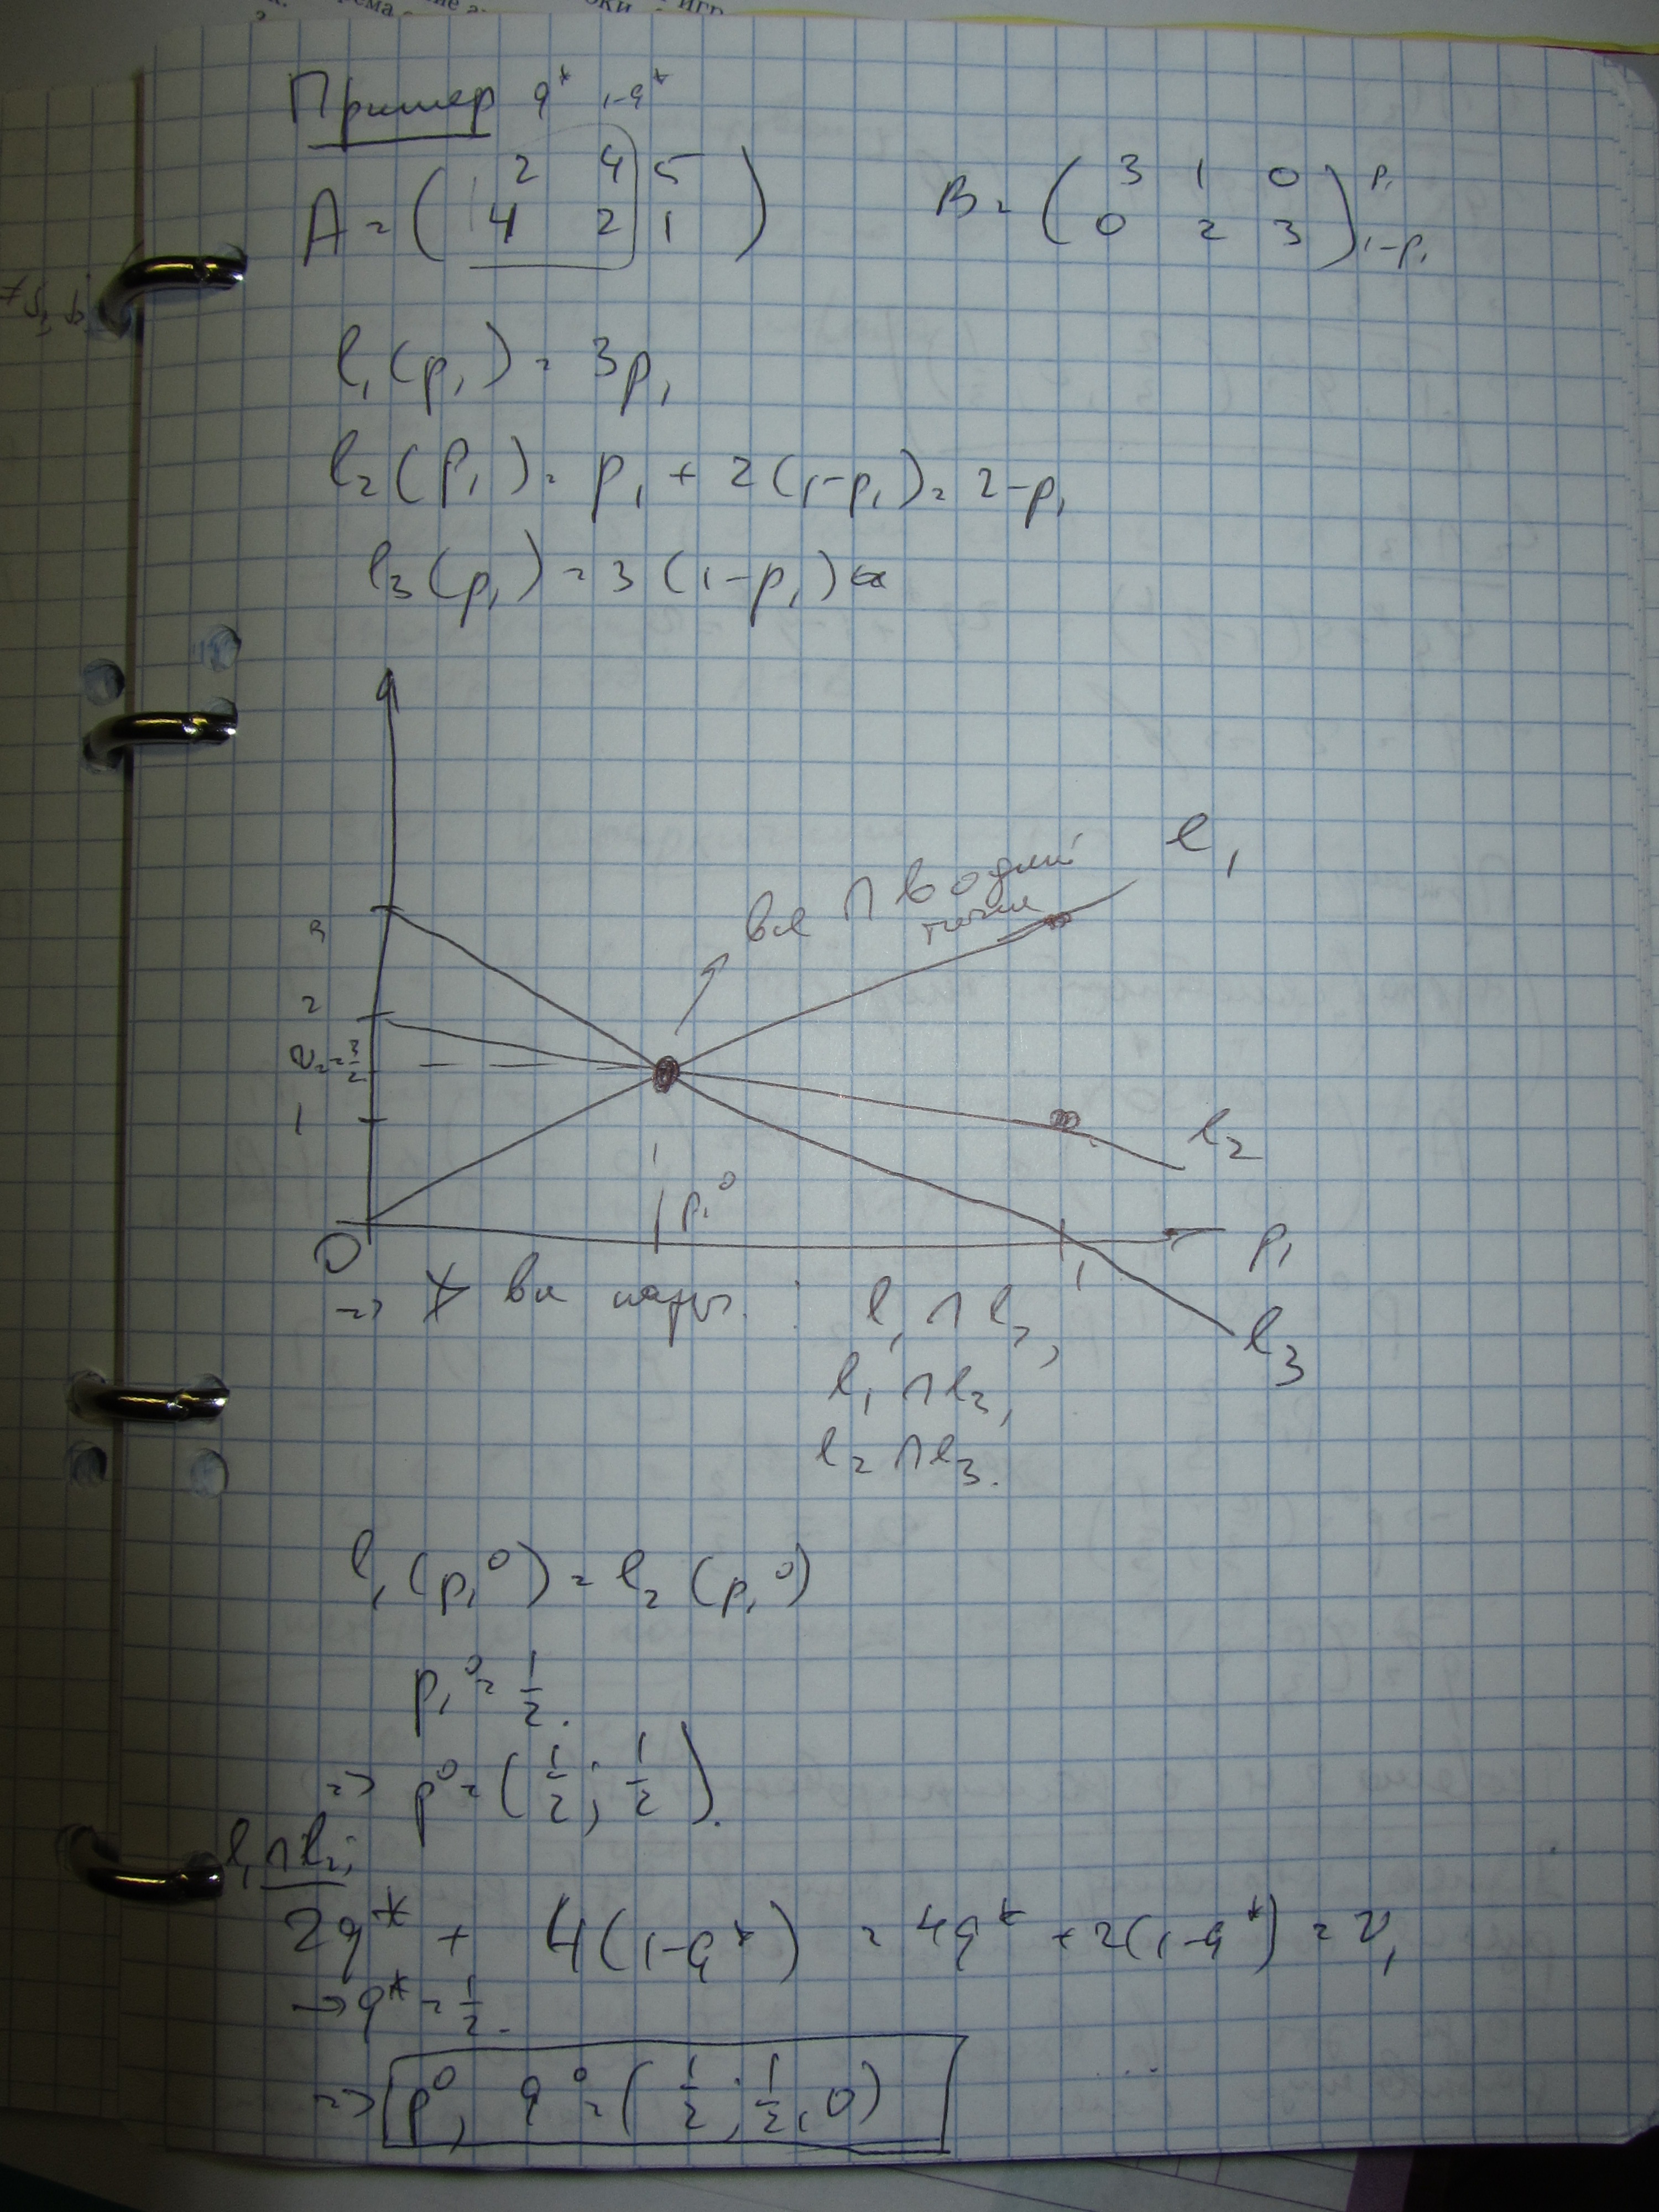 Пример q* 1-q*
A = ( 2 4 5
4 2 1 )
B = ( 3 1 0
0 2 3 ) p₁
1-p₁
l₁(p₁) = 3p₁
l₂(p₁) = p₁ + 2(1-p₁) = 2-p₁
l₃(p₁) = 3(1-p₁)
l₁
все ∩ в одной
точке
3
2
v₂ = 3/2
1
l₂
p₁⁰
0
p₁
1
l₃
=> все пары :
l₁ ∩ l₂,
l₁ ∩ l₃,
l₂ ∩ l₃.
l₁(p₁⁰) = l₂(p₁⁰)
p₁⁰ = 1/2.
=> p⁰ = (1/2; 1/2).
l₁ ∩ l₂:
2q* + 4(1-q*) = 4q* + 2(1-q*) = v₁
→ q* = 1/2.
=> p⁰, q⁰ = (1/2; 1/2, 0)